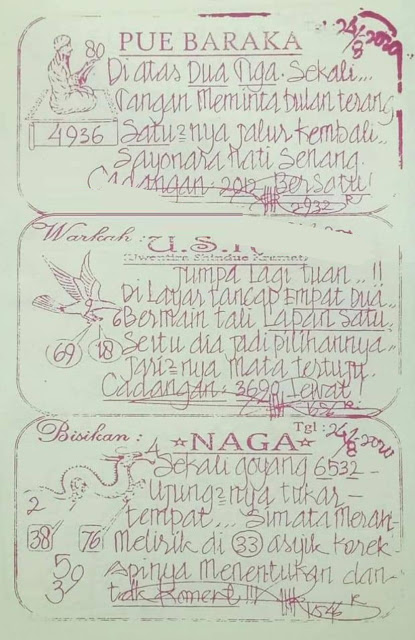 PUE BARAKA
24/8 2020
80
4936
Di atas Dua Tiga Sekali...
Jangan Meminta bulan terang
Satu2nya jalur Kembali..
Sayonara Hati Senang.
Cadangan Bersatu!
2932
Warkah: U.S.
(Uwentira Shindue Kramat)
Jumpa Lagi tuan .. !!
Di Layar tancap Empat Dua..
Bermain tali Lapan Satu..
Seitu dia jadi pilihannya..
Jari2nya Mata tertuju.
69 18
Cadangan 3690 Lewat!
Bisikan: NAGA
Tgl: 24/8-2020
Sekali goyang 6532 -
Ujung2nya tukar -
tempat... Simata Merah-
Melirik di 33 asyik Korek-
Apinya Menentukan dan-
tdk Koment !!!
2
38 76
50
3